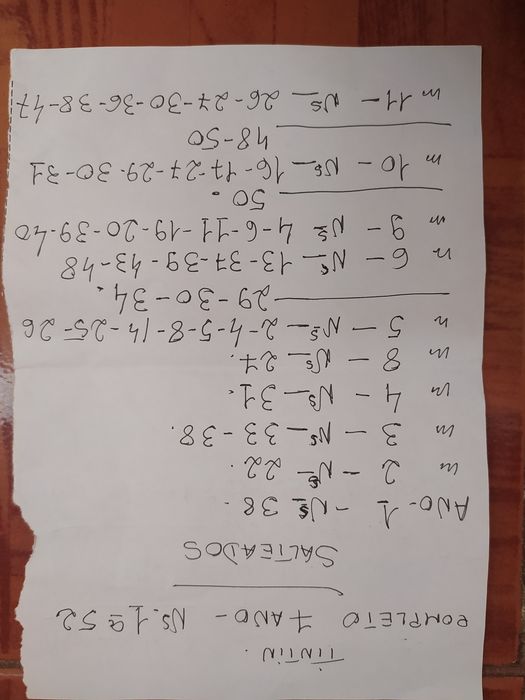 TINTIN.
COMPLETO 7 ANO - Nº.1 a 52
SALTEADOS
ANO-1 - Nº 38.
" 2 - Nº 22.
" 3 - Nºs 33-38.
" 4 - Nº 31.
" 8 - Nº 27.
" 5 - Nºs 2-4-5-8-14-25-26
29-30-34.
" 6 - Nºs 13-37-39-43-48
" 9 - Nºs 4-6-11-19-20-39-40
50.
" 10 - Nºs 16-17-27-29-30-31
48-50
" 11 - Nºs 26-27-30-36-38-47